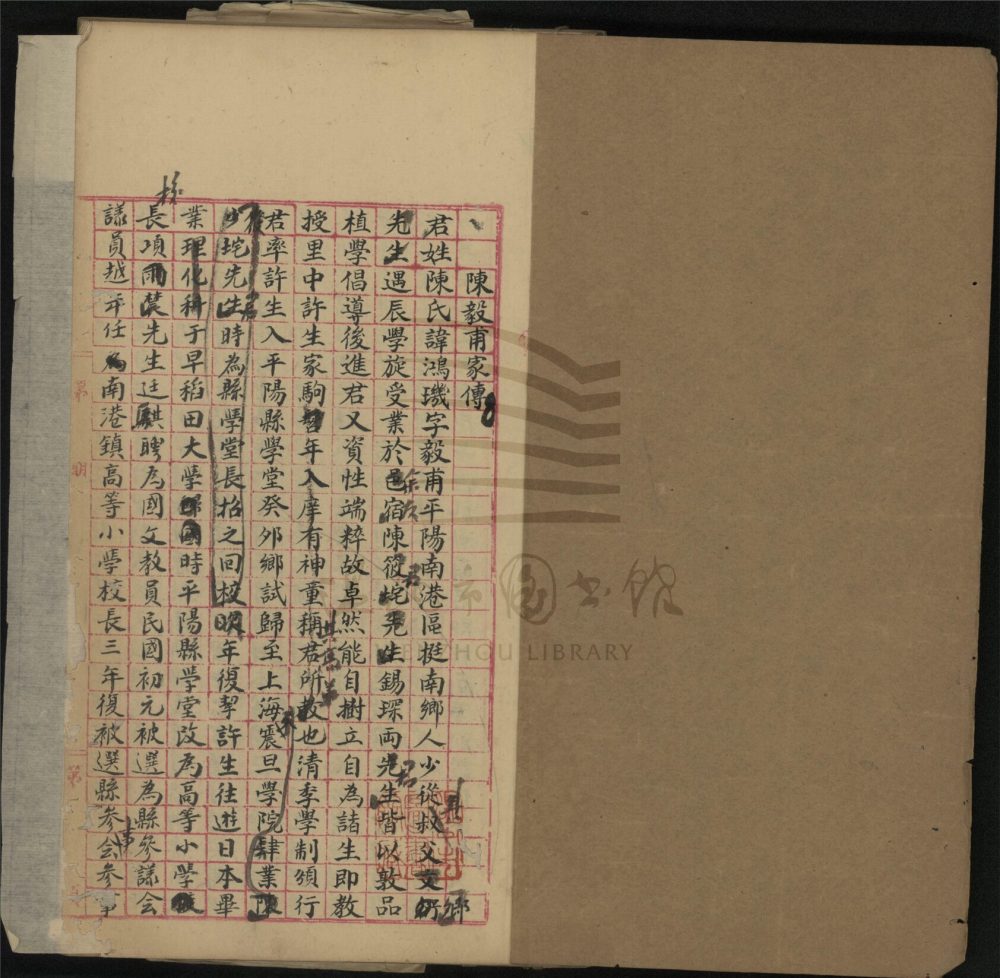 陳毅甫家傳
君姓陳氏諱鴻璣字毅甫平陽南港區挺南鄉人少從叔父
先生遇辰學旋受業於邑宿陳筱垞先生錫琛兩先生皆以敦品
植學倡導後進君又資性端粹故卓然能自樹立自為諸生即教
授里中許生家駒年入庠有神童稱君所教也清季學制頒行
君率許生入平陽縣學堂癸卯鄉試歸至上海震旦學院肆業陳
垞先生時為縣學堂長招之回校明年復挈許生往遊日本畢
業理化科于早稻田大學歸國時平陽縣學堂改為高等小學校
校
長項先生廷騏聘為國文教員民國初元被選為縣參議會
議員越年任南港鎮高等小學校長三年復被選縣參會參事
事
君
君
圖書館
WENZHOU LIBRARY
第
期
第